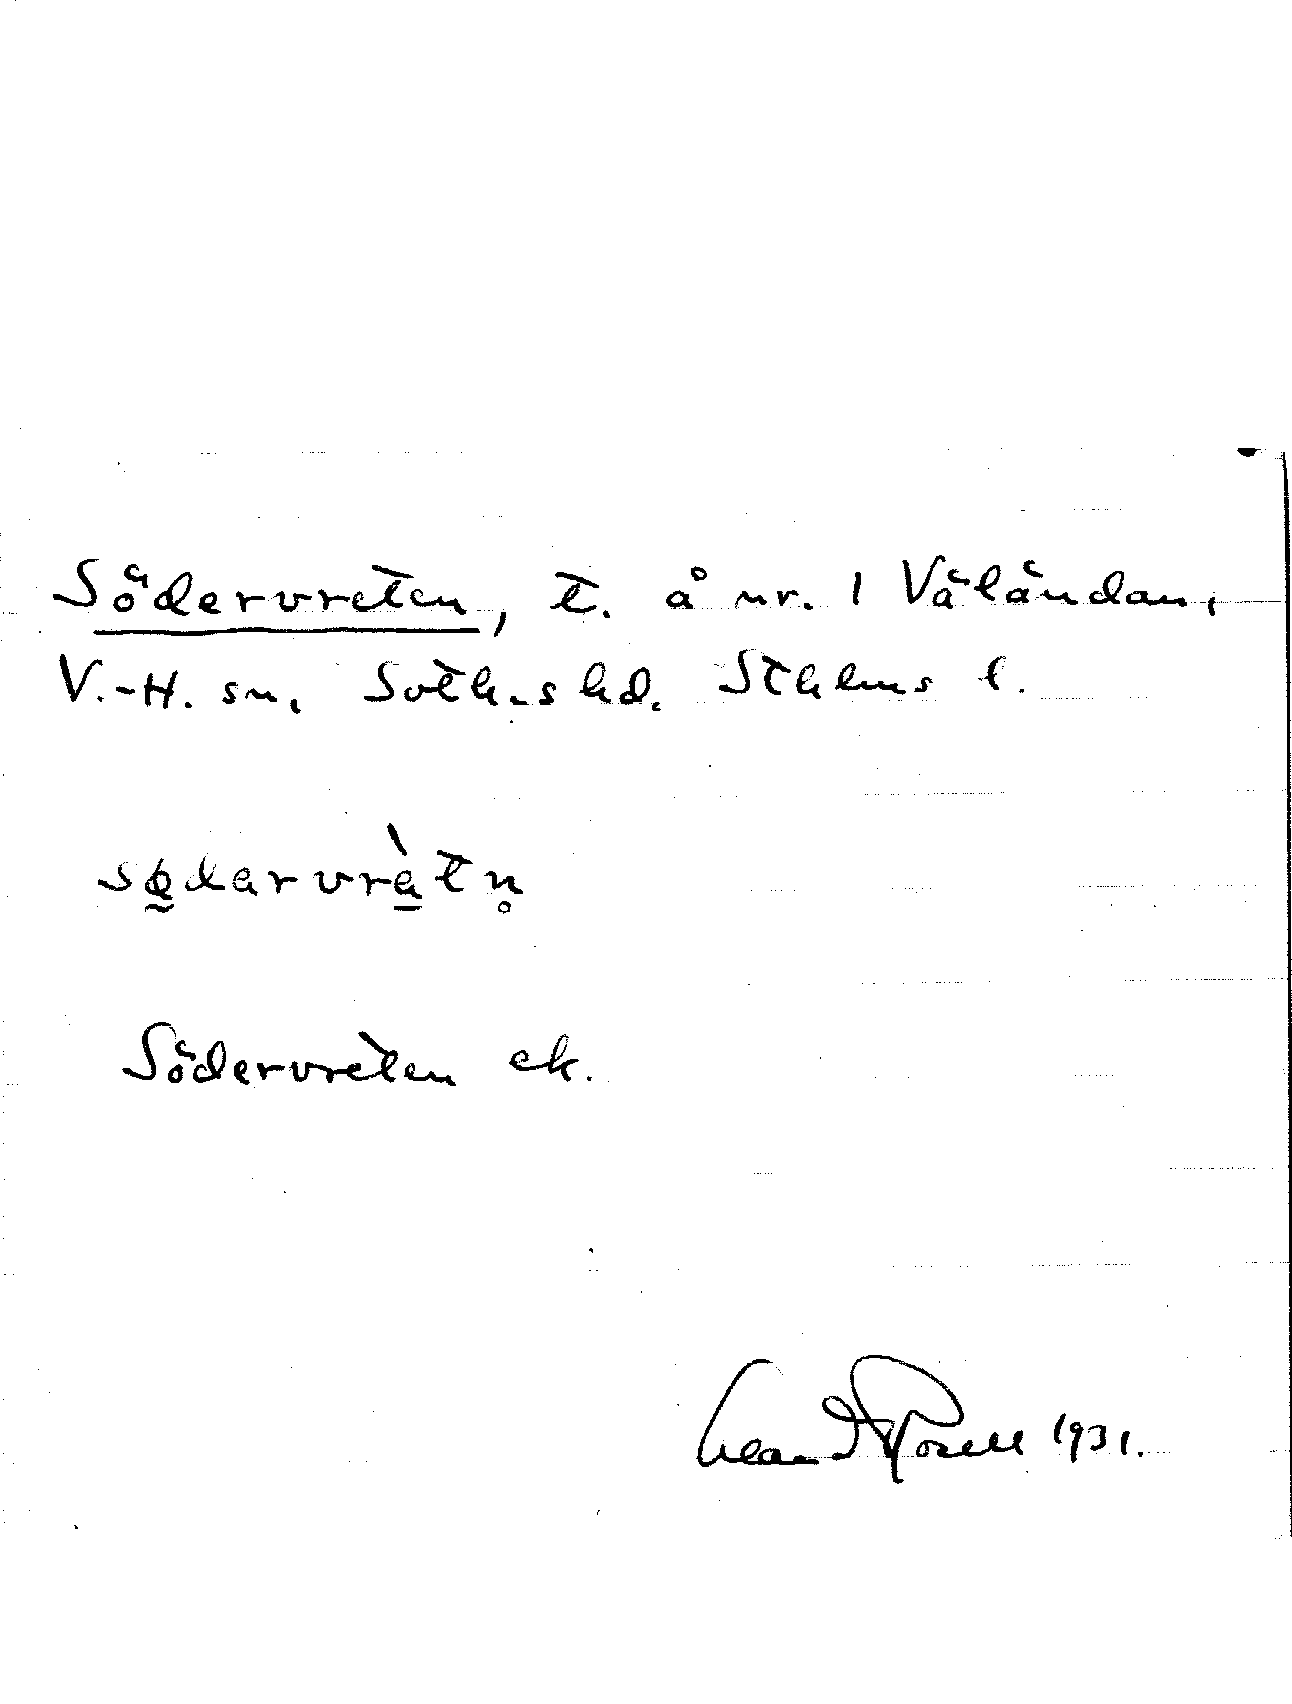 Södervreten, t. å nr. 1 Väländan,
V.-H. sn, Soth.s hd. Sthlms l.
sødərvrètn̥
Södervreten ek.
Rosell 1931.